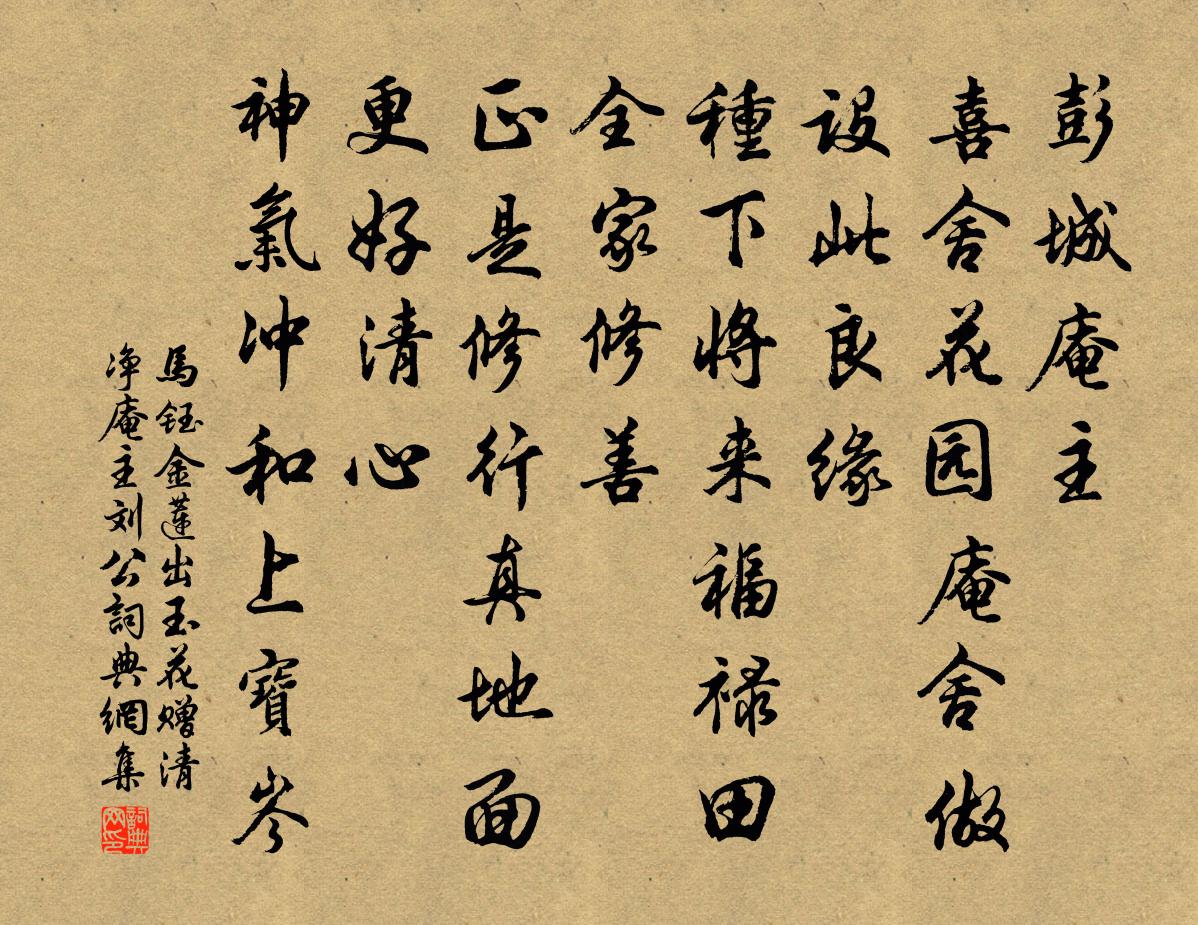 彭城庵主
喜舍花园庵舍做
设此良缘
種下将来福禄田
全家修善
正是修行真地面
更好清心
神氣冲和上寶岑
馬钰金莲出玉花赠清
净庵主刘公詞典網集
詞典網印